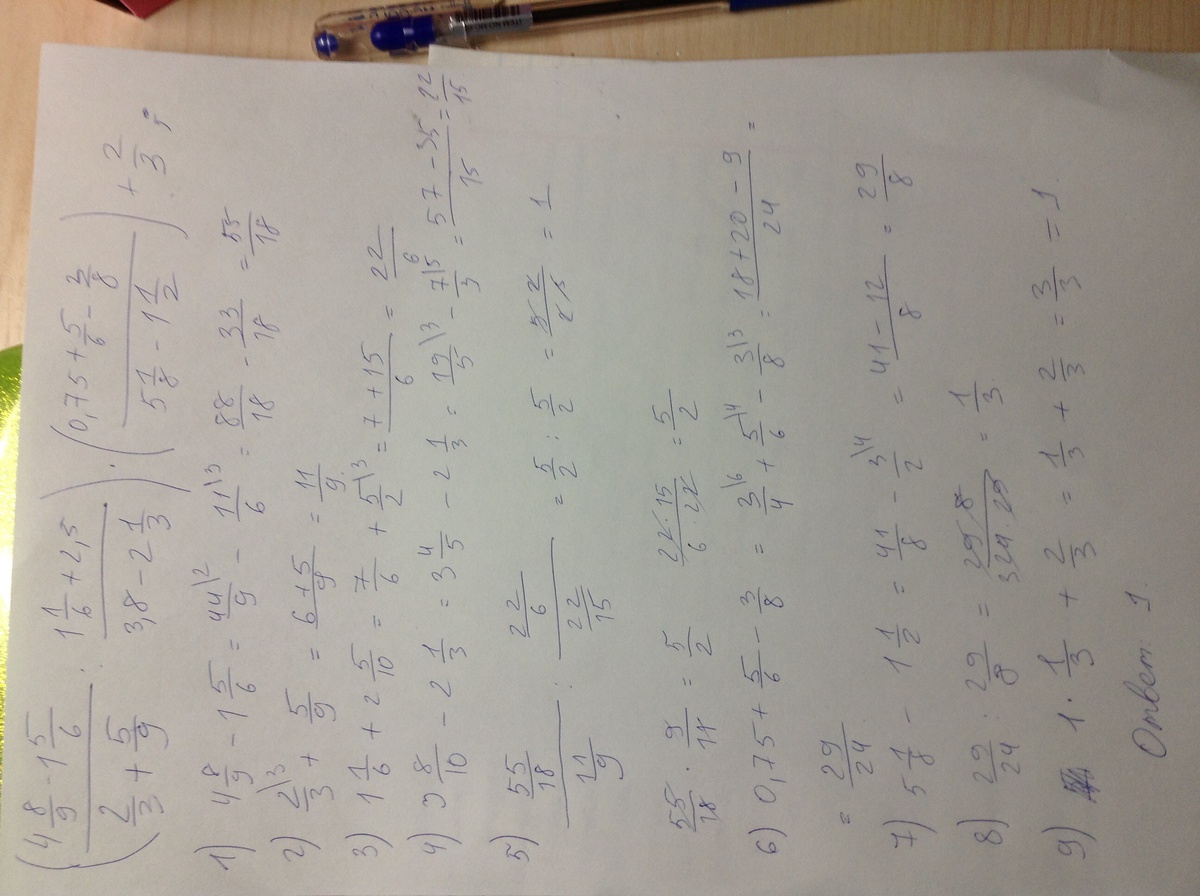 (4 8/9 - 1 5/6 / 2/3 + 5/9 : 1 1/6 + 2,5 / 3,8 - 2 1/3) · (0,75 + 5/6 - 3/8 / 5 1/8 - 1 1/2) + 2/3 ;
1) 4 8/9 - 1 5/6 = 44\2/9 - 11\3/6 = 88/18 - 33/18 = 55/18
2) 2\3/3 + 5/9 = 6+5/9 = 11/9
3) 1 1/6 + 2 5/10 = 7/6 + 5\3/2 = 7+15/6 = 22/6
4) 3 8/10 - 2 1/3 = 3 4/5 - 2 1/3 = 19\3/5 - 7\5/3 = 57-35/15 = 22/15
5) 55/18 / 11/9 : 22/6 / 22/15 = 5/2 : 5/2 = 5·2/2·5 = 1
55/18 · 9/11 = 5/2 22·15/6·22 = 5/2
6) 0,75 + 5/6 - 3/8 = 3\6/4 + 5\4/6 - 3\3/8 = 18+20-9/24 =
= 29/24
7) 5 1/8 - 1 1/2 = 41/8 - 3\4/2 = 41-12/8 = 29/8
8) 29/24 : 29/8 = 29·8/24·29 = 1/3
9) 1 · 1/3 + 2/3 = 1/3 + 2/3 = 3/3 = 1
Ответ: 1